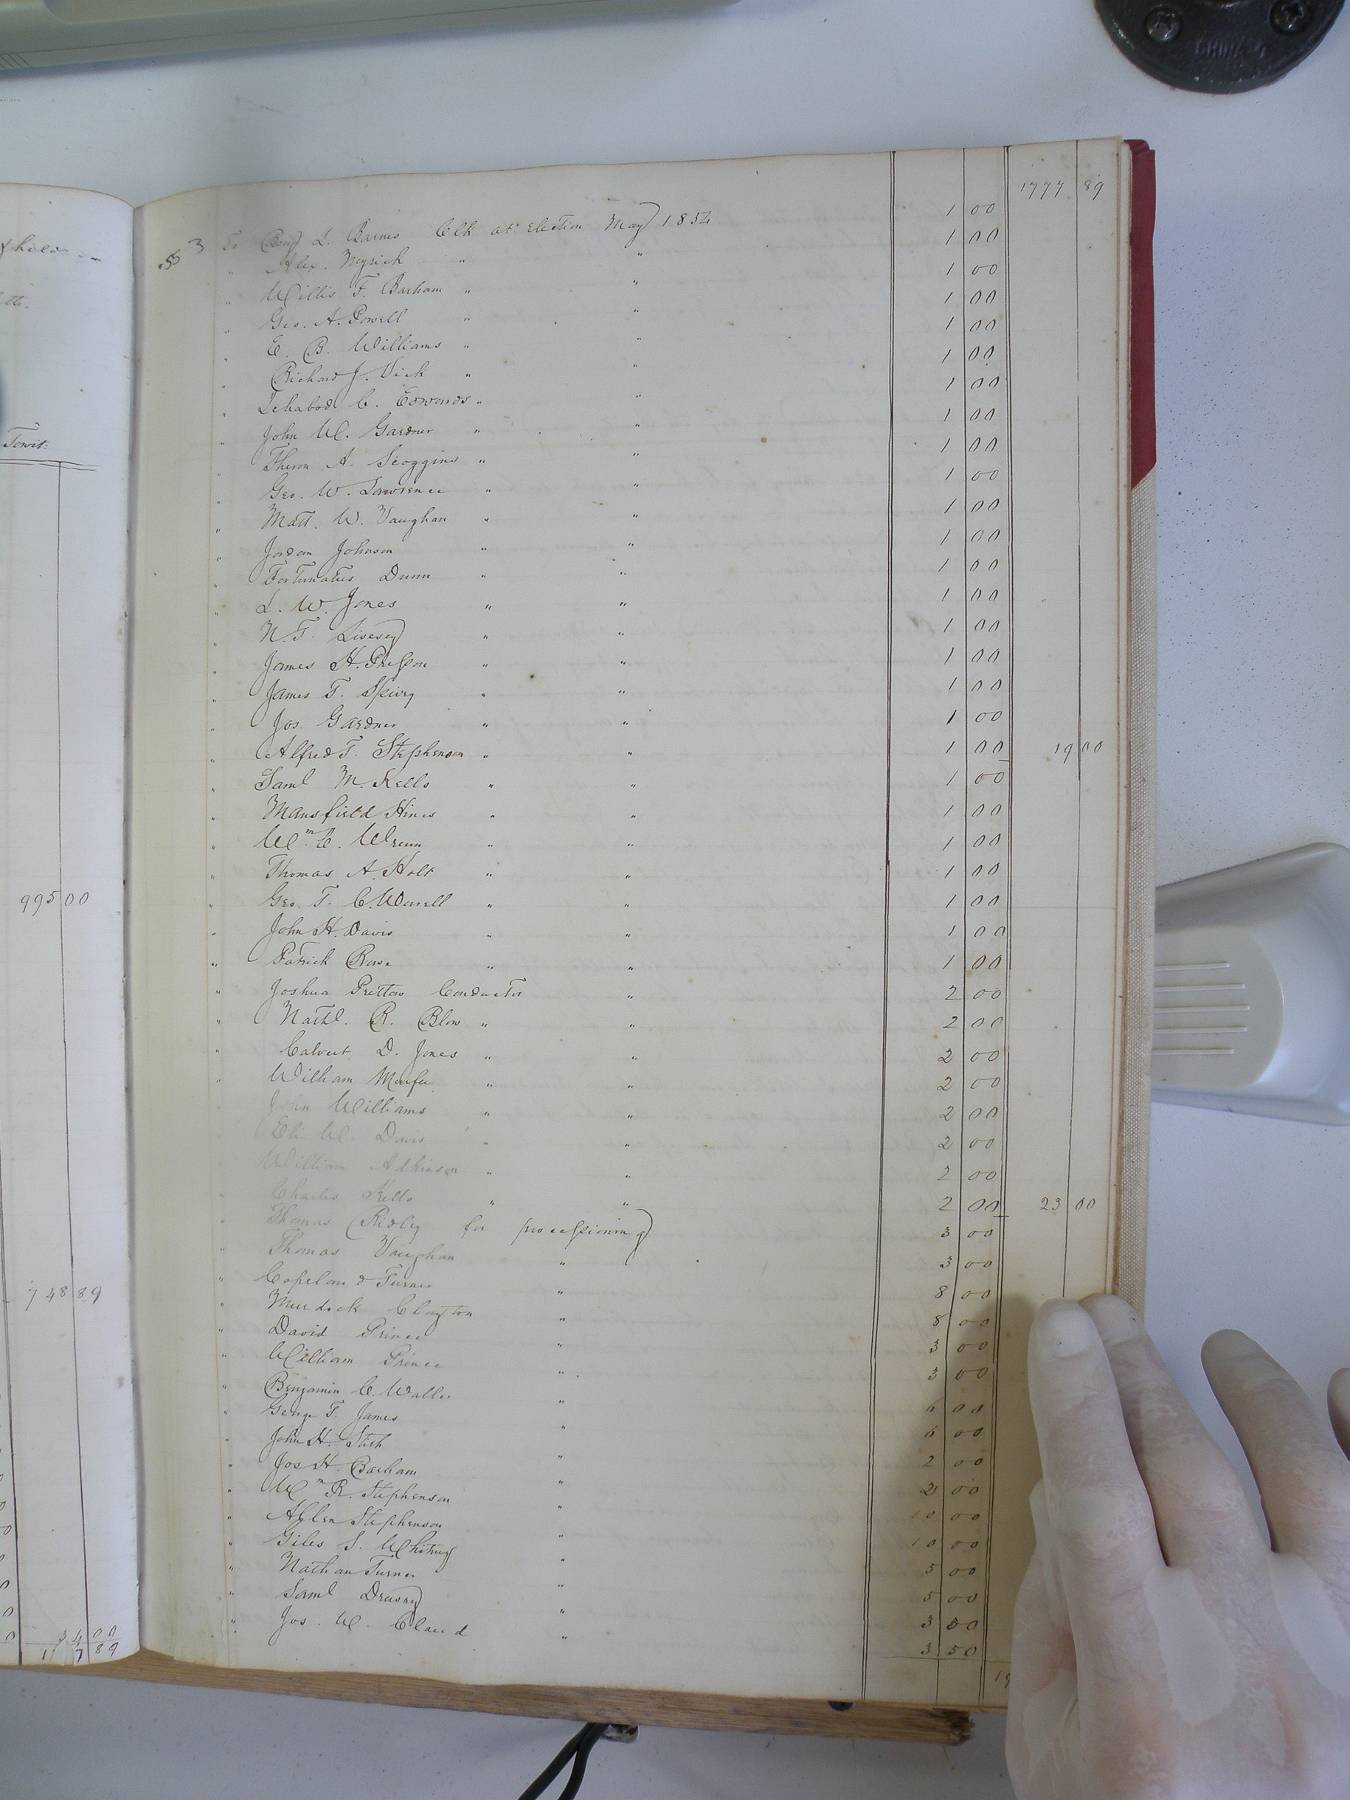 995 00
7 48 89
34 00
1777 89
$ 3 To Benj L. Barnes Clk at Election May 1854 1 00
" Alex. Myrick " " 1 00
" Willis F. Barham " " 1 00
" Geo. A. Powell " " 1 00
" E. B. Williams " " 1 00
" Richard J. Vick " " 1 00
" Ichabod C. Edwards " " 1 00
" John W. Gardner " " 1 00
" Theron A. Scoggins " " 1 00
" Geo. W. Lawrence " " 1 00
" Matt. W. Vaughan " " 1 00
" Jordan Johnson " " 1 00
" Fortunatus Dunn " " 1 00
" L. W. Jones " " 1 00
" N. T. Livesey " " 1 00
" James H. Presson " " 1 00
" James T. Spivey " " 1 00
" Jos. Gardner " " 1 00
" Alfred T. Stephenson " " 1 00 19 00
" Saml M. Kello " " 1 00
" Mansfield Hines " " 1 00
" Wm E. Wrenn " " 1 00
" Thomas A. Holt " " 1 00
" Geo. T. C. Worrell " " 1 00
" John H. Davis " " 1 00
" Patrick Rose " " 1 00
" Joshua Pretlow Conductor " 2 00
" Nathl. R. Blow " " 2 00
" Calvert D. Jones " " 2 00
" William " " 2 00
" John Williams " " 2 00
" Eli W. Davis " " 2 00
" William Atkinson " " 2 00
" Charles Kello " " 2 00 23 00
" Thomas Ridley for processioning 3 00
" Thomas Vaughan " 3 00
" Copeland Turner " 8 00
" Murdock Clayton " 8 00
" David Prince " 3 00
" William Prince " 3 00
" Benjamin C. Waller " 6 00
" George T. James " 6 00
" John H. " 2 00
" Jos H. Barham " 2 00
" Wm R. Stephenson " 10 00
" Allen Stephenson " 10 00
" Giles S. Whitney " 5 00
" Nathan Turner " 5 00
" Saml Drewry " 3 50
" Jos. W. Claud " 3 50